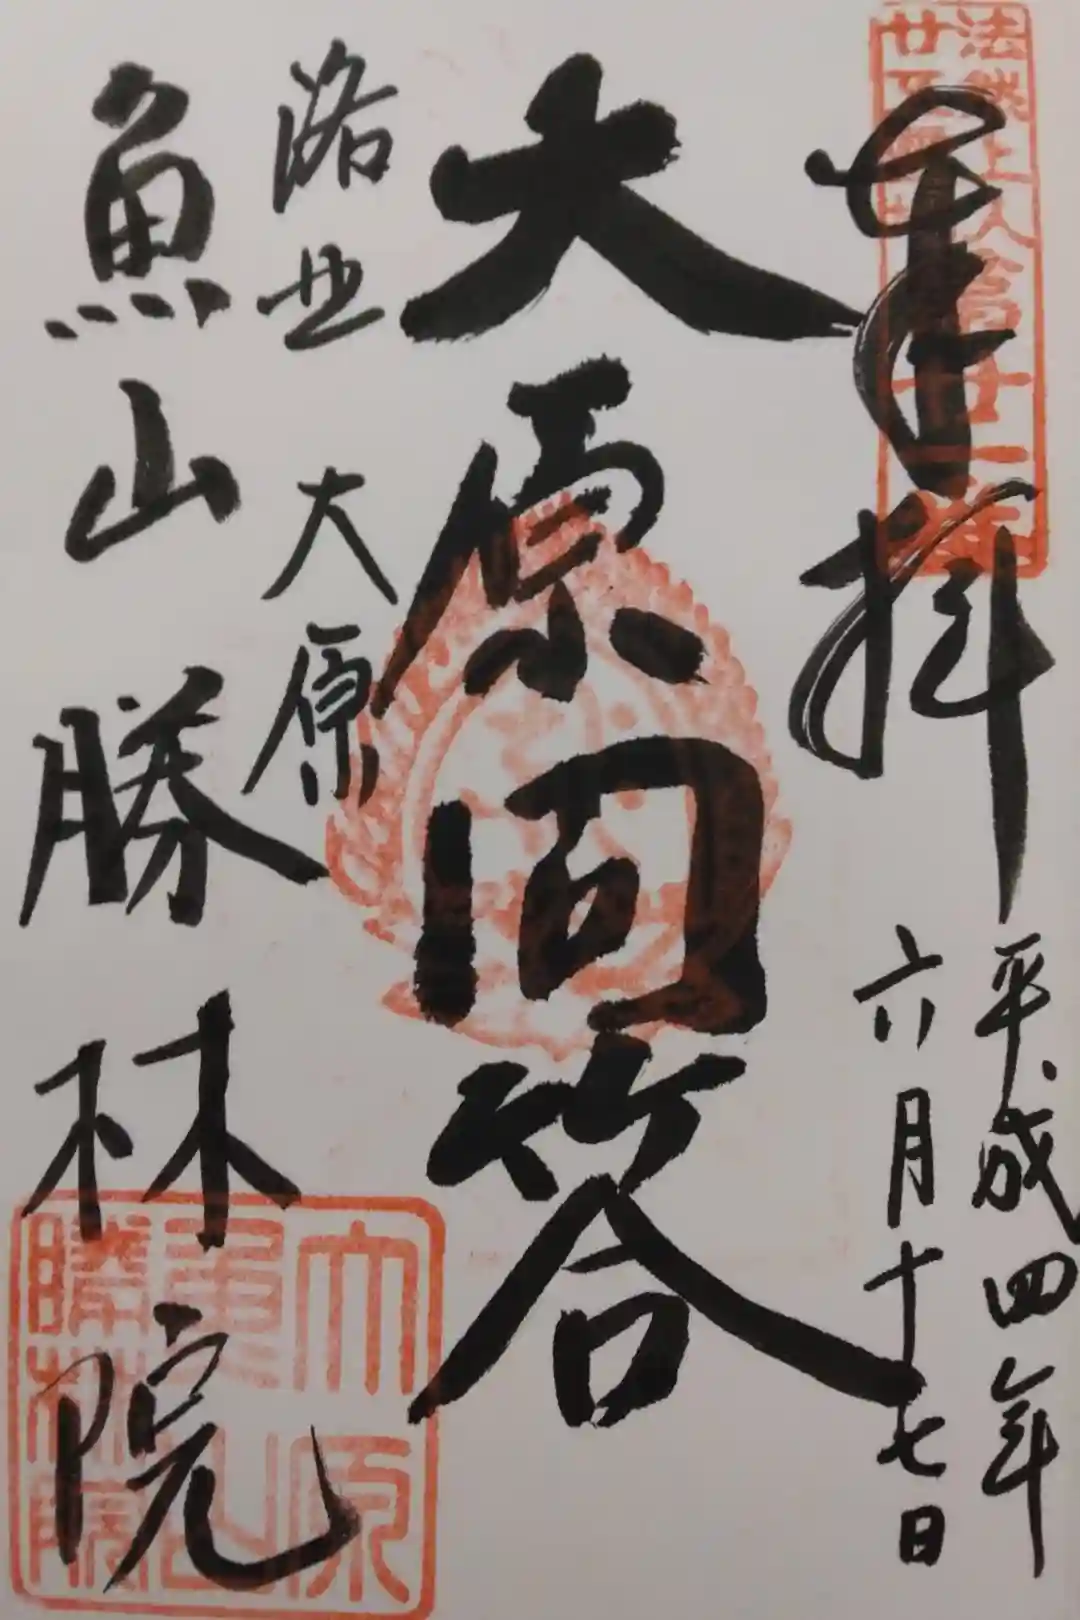 奉拝
平成四年
六月十七日
大原問答
洛北 大原
魚山 勝林院
法然上人
廿一番
大原
魚山
勝林院